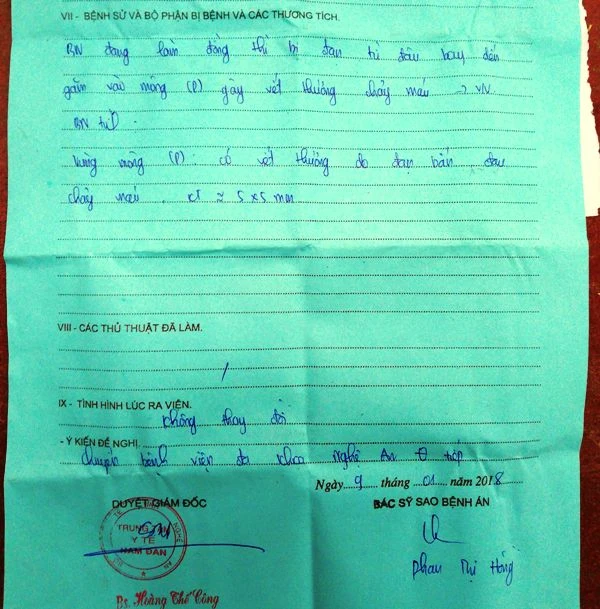 VII - BỆNH SỬ VÀ BỘ PHẬN BỊ BỆNH VÀ CÁC THƯƠNG TÍCH.
BN đang làm đồng thì bị đạn từ đâu bay đến
găm vào mông (P) gây vết thương chảy máu → VV.
BN tỉnh.
Vùng mông (P) có vết thương do đạn bắn, đau
chảy máu. KT ≈ 5 x 5 mm
VIII - CÁC THỦ THUẬT ĐÃ LÀM.
/
IX - TÌNH HÌNH LÚC RA VIỆN.
không thay đổi
- Ý KIẾN ĐỀ NGHỊ.
Chuyển bệnh viện đa khoa Nghệ An Θ tiếp
Ngày 9 tháng 01 năm 2018
DUYỆT GIÁM ĐỐC
BÁC SỸ SAO BỆNH ÁN
TRUNG TÂM
Y TẾ
NAM ĐÀN
NGHỆ AN
Phan Thị Hồng
Bs. Hoàng Thế Công